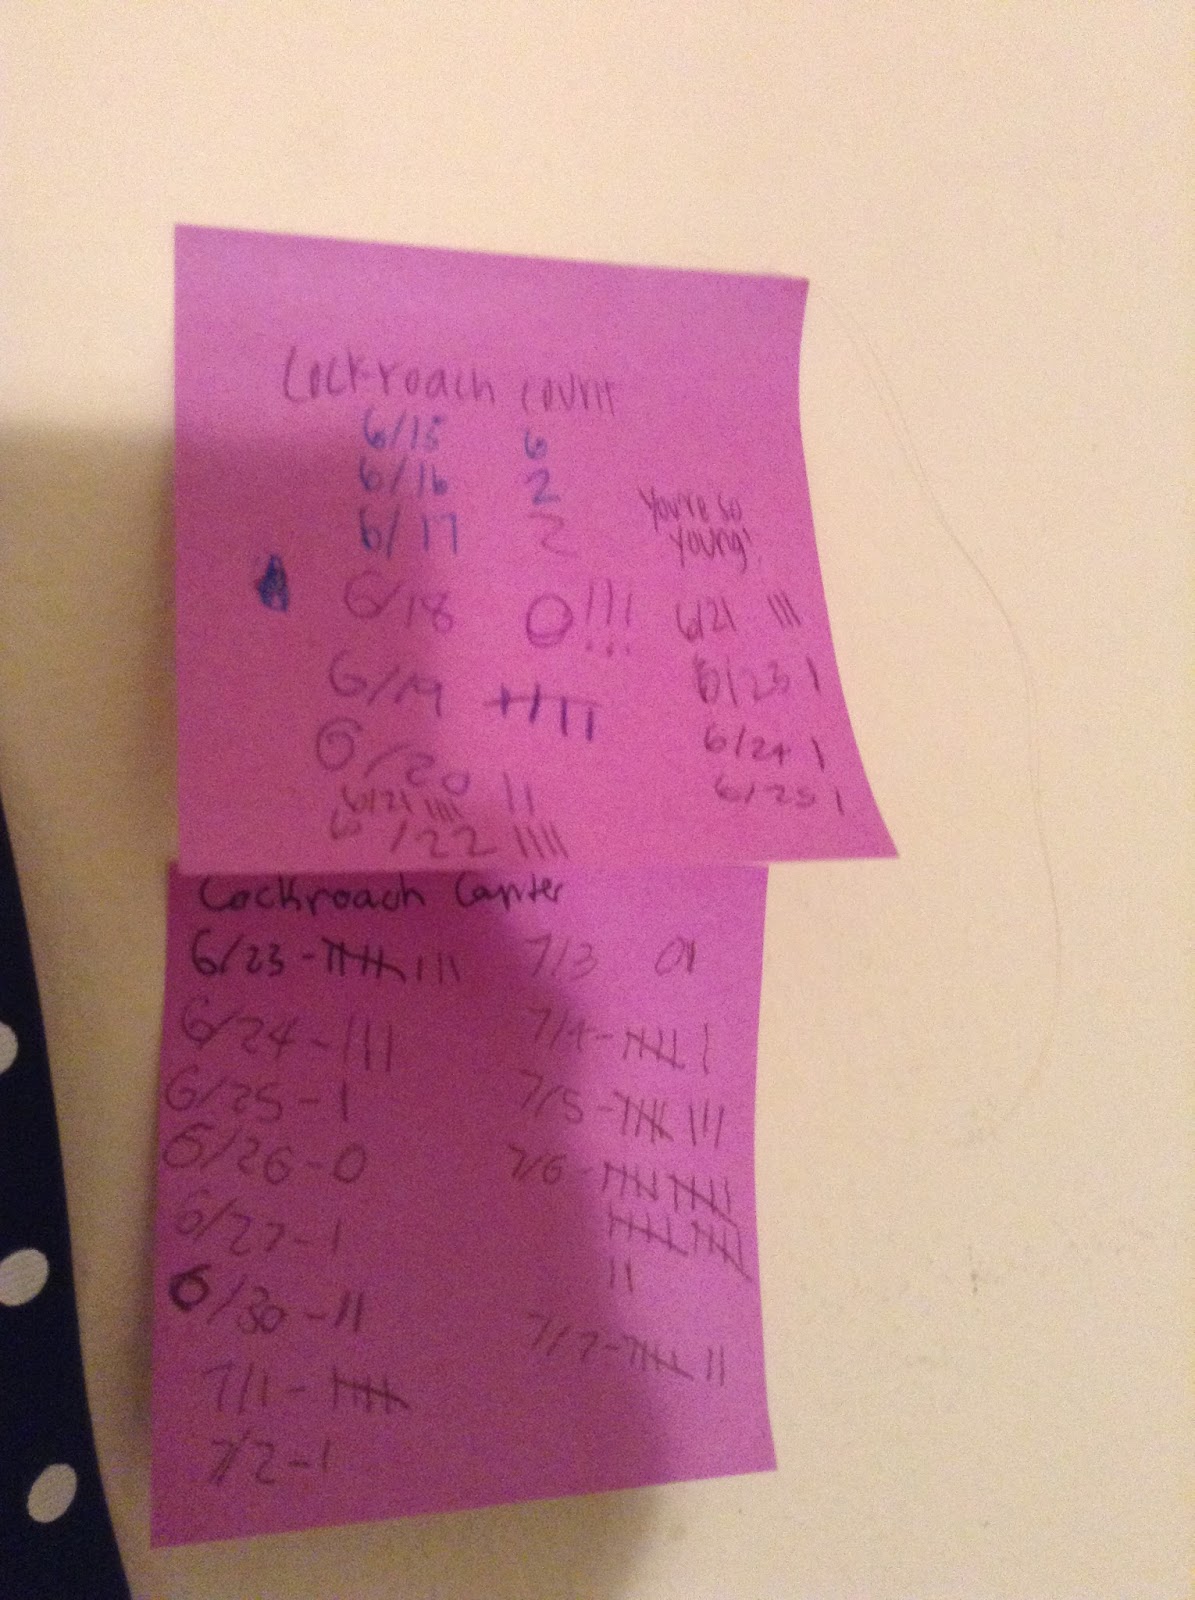 Cockroach count
6/15 6
6/16 2
6/17 2
6/18 0!!!
6/19 ||||
6/20 ||
6/21 ||||
6/22 ||||
You're so
young!
6/21 |||
6/23 |
6/24 |
6/25 |
Cockroach Counter
6/23 - 卌 |||
6/24 - |||
6/25 - 1
6/26 - 0
6/27 - 1
6/30 - ||
7/1 - 卌
7/2 - 1
7/3
7/4 - 卌 |
7/5 - 卌 |||
7/6 - 卌 卌
卌 卌
||
7/7 - 卌 ||